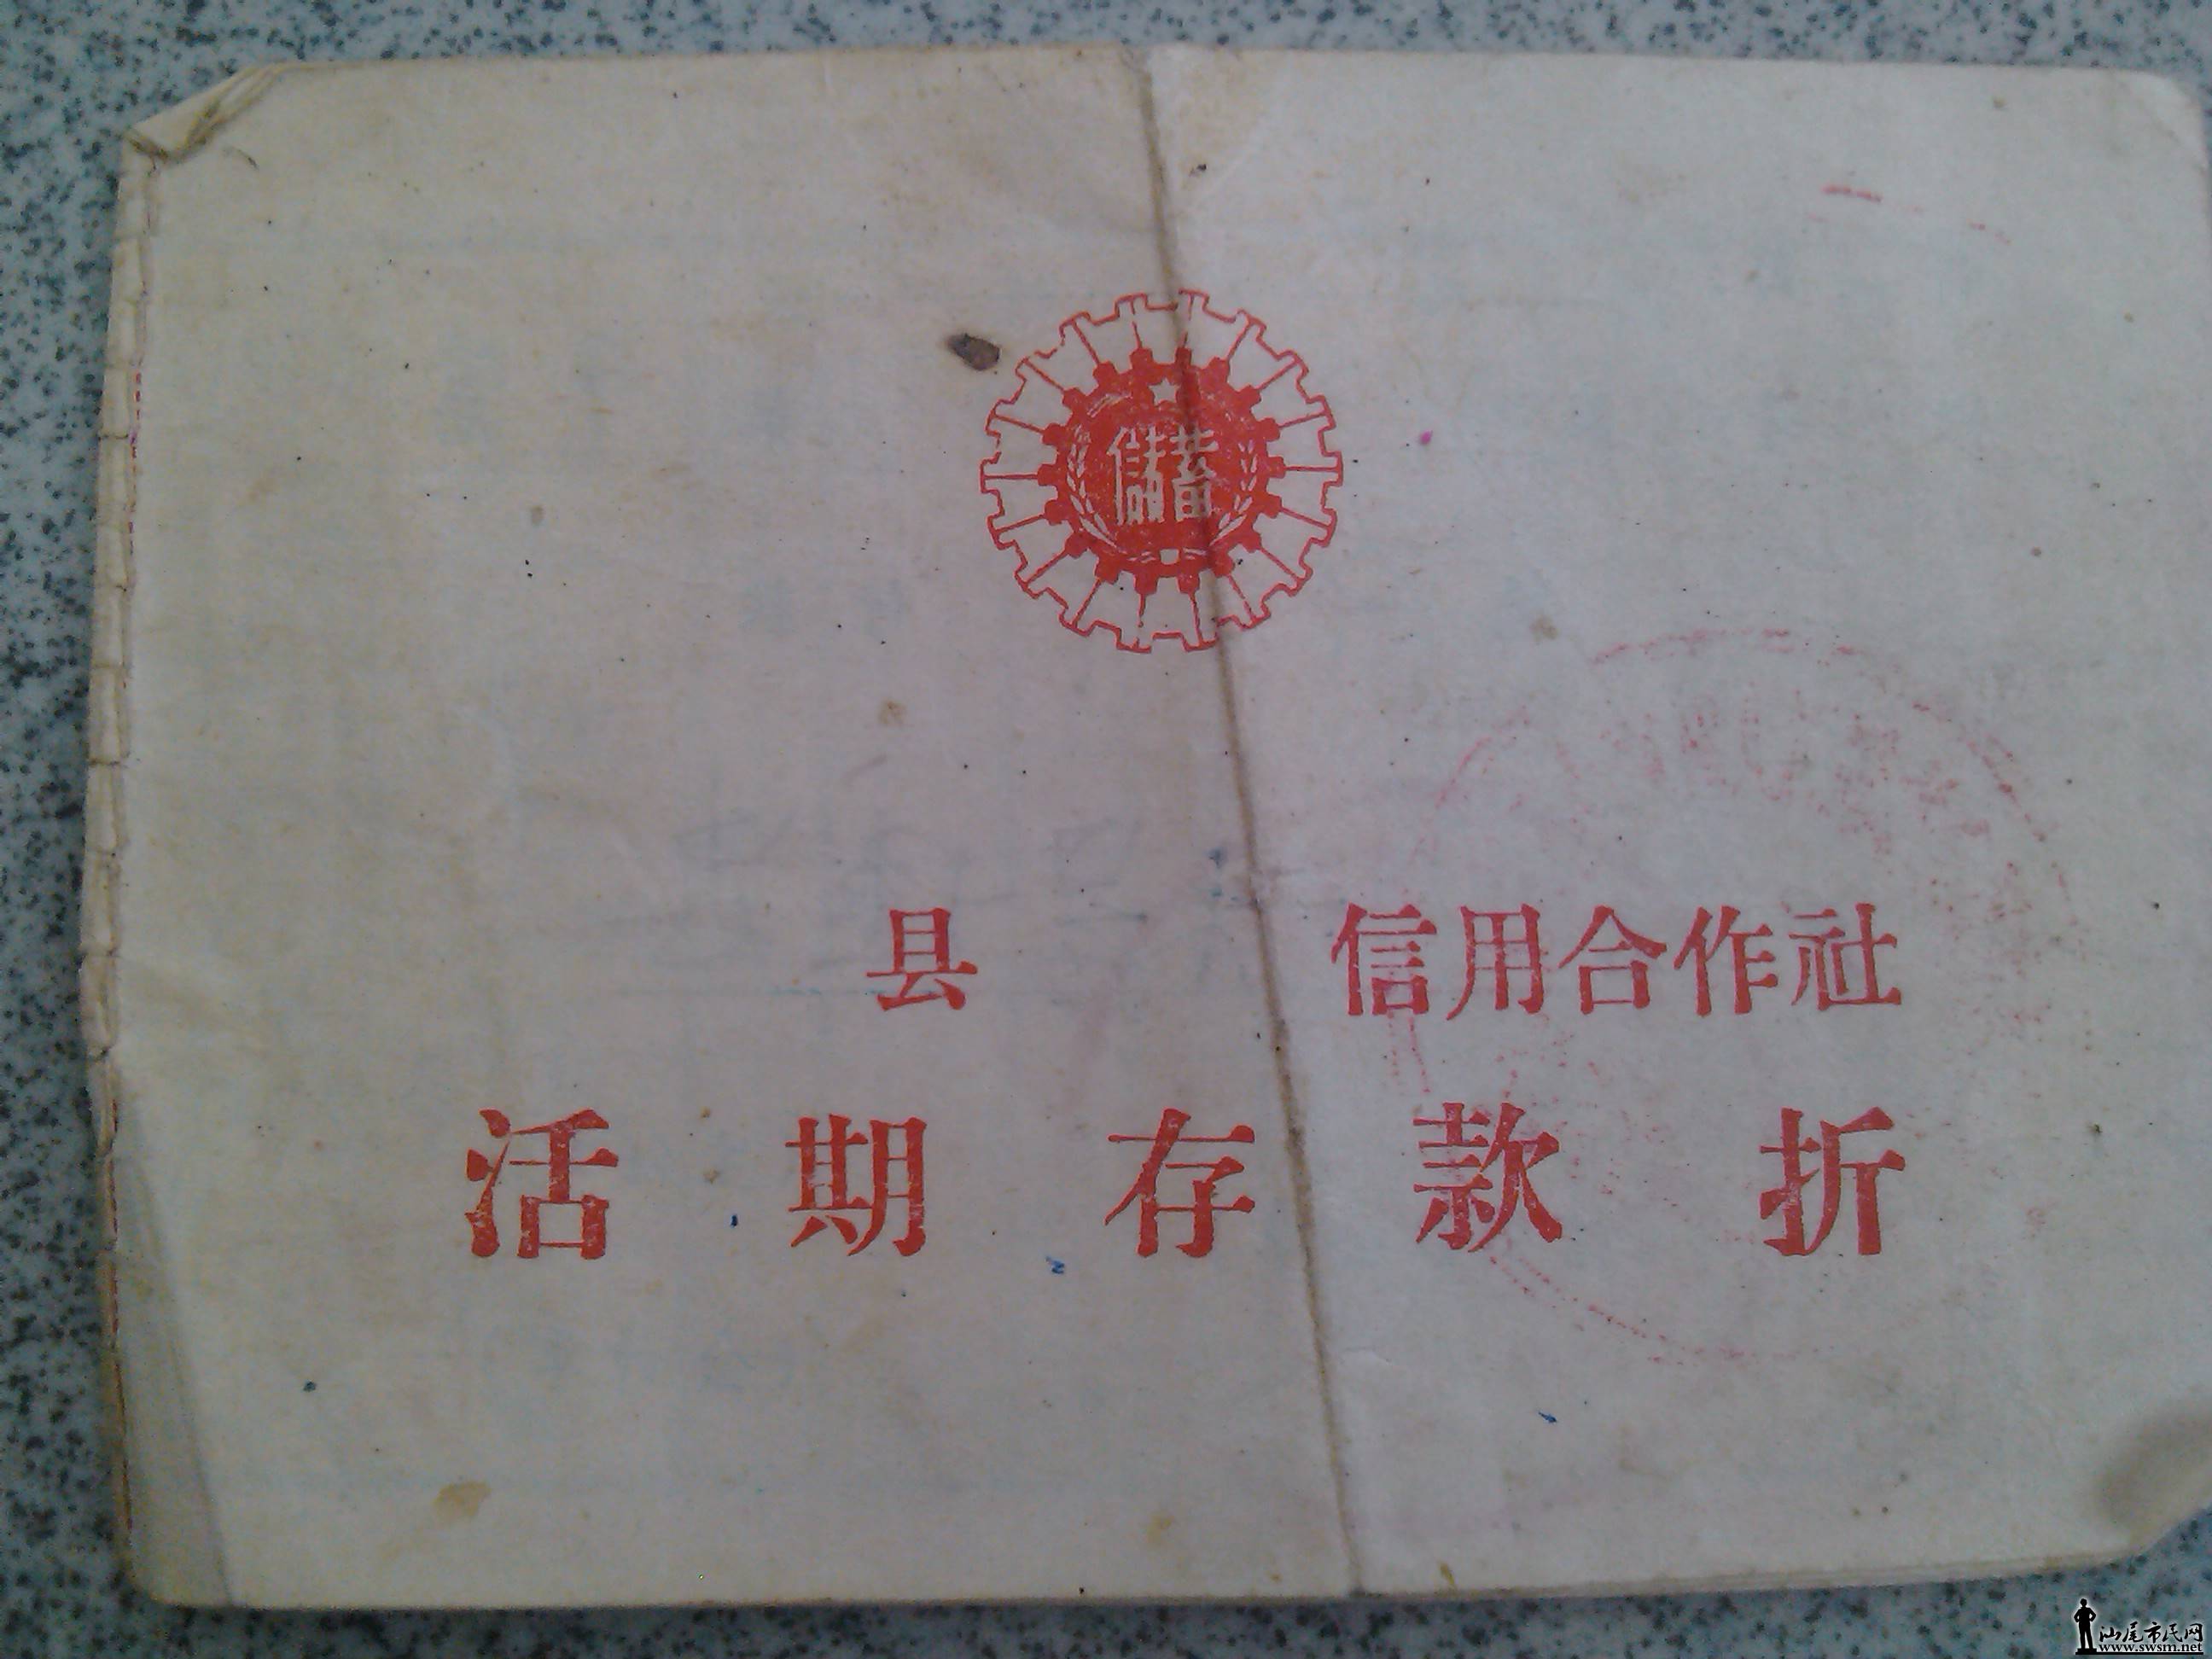 儲蓄
县 信用合作社
活期存款折
汕尾市民网
www.swsm.net